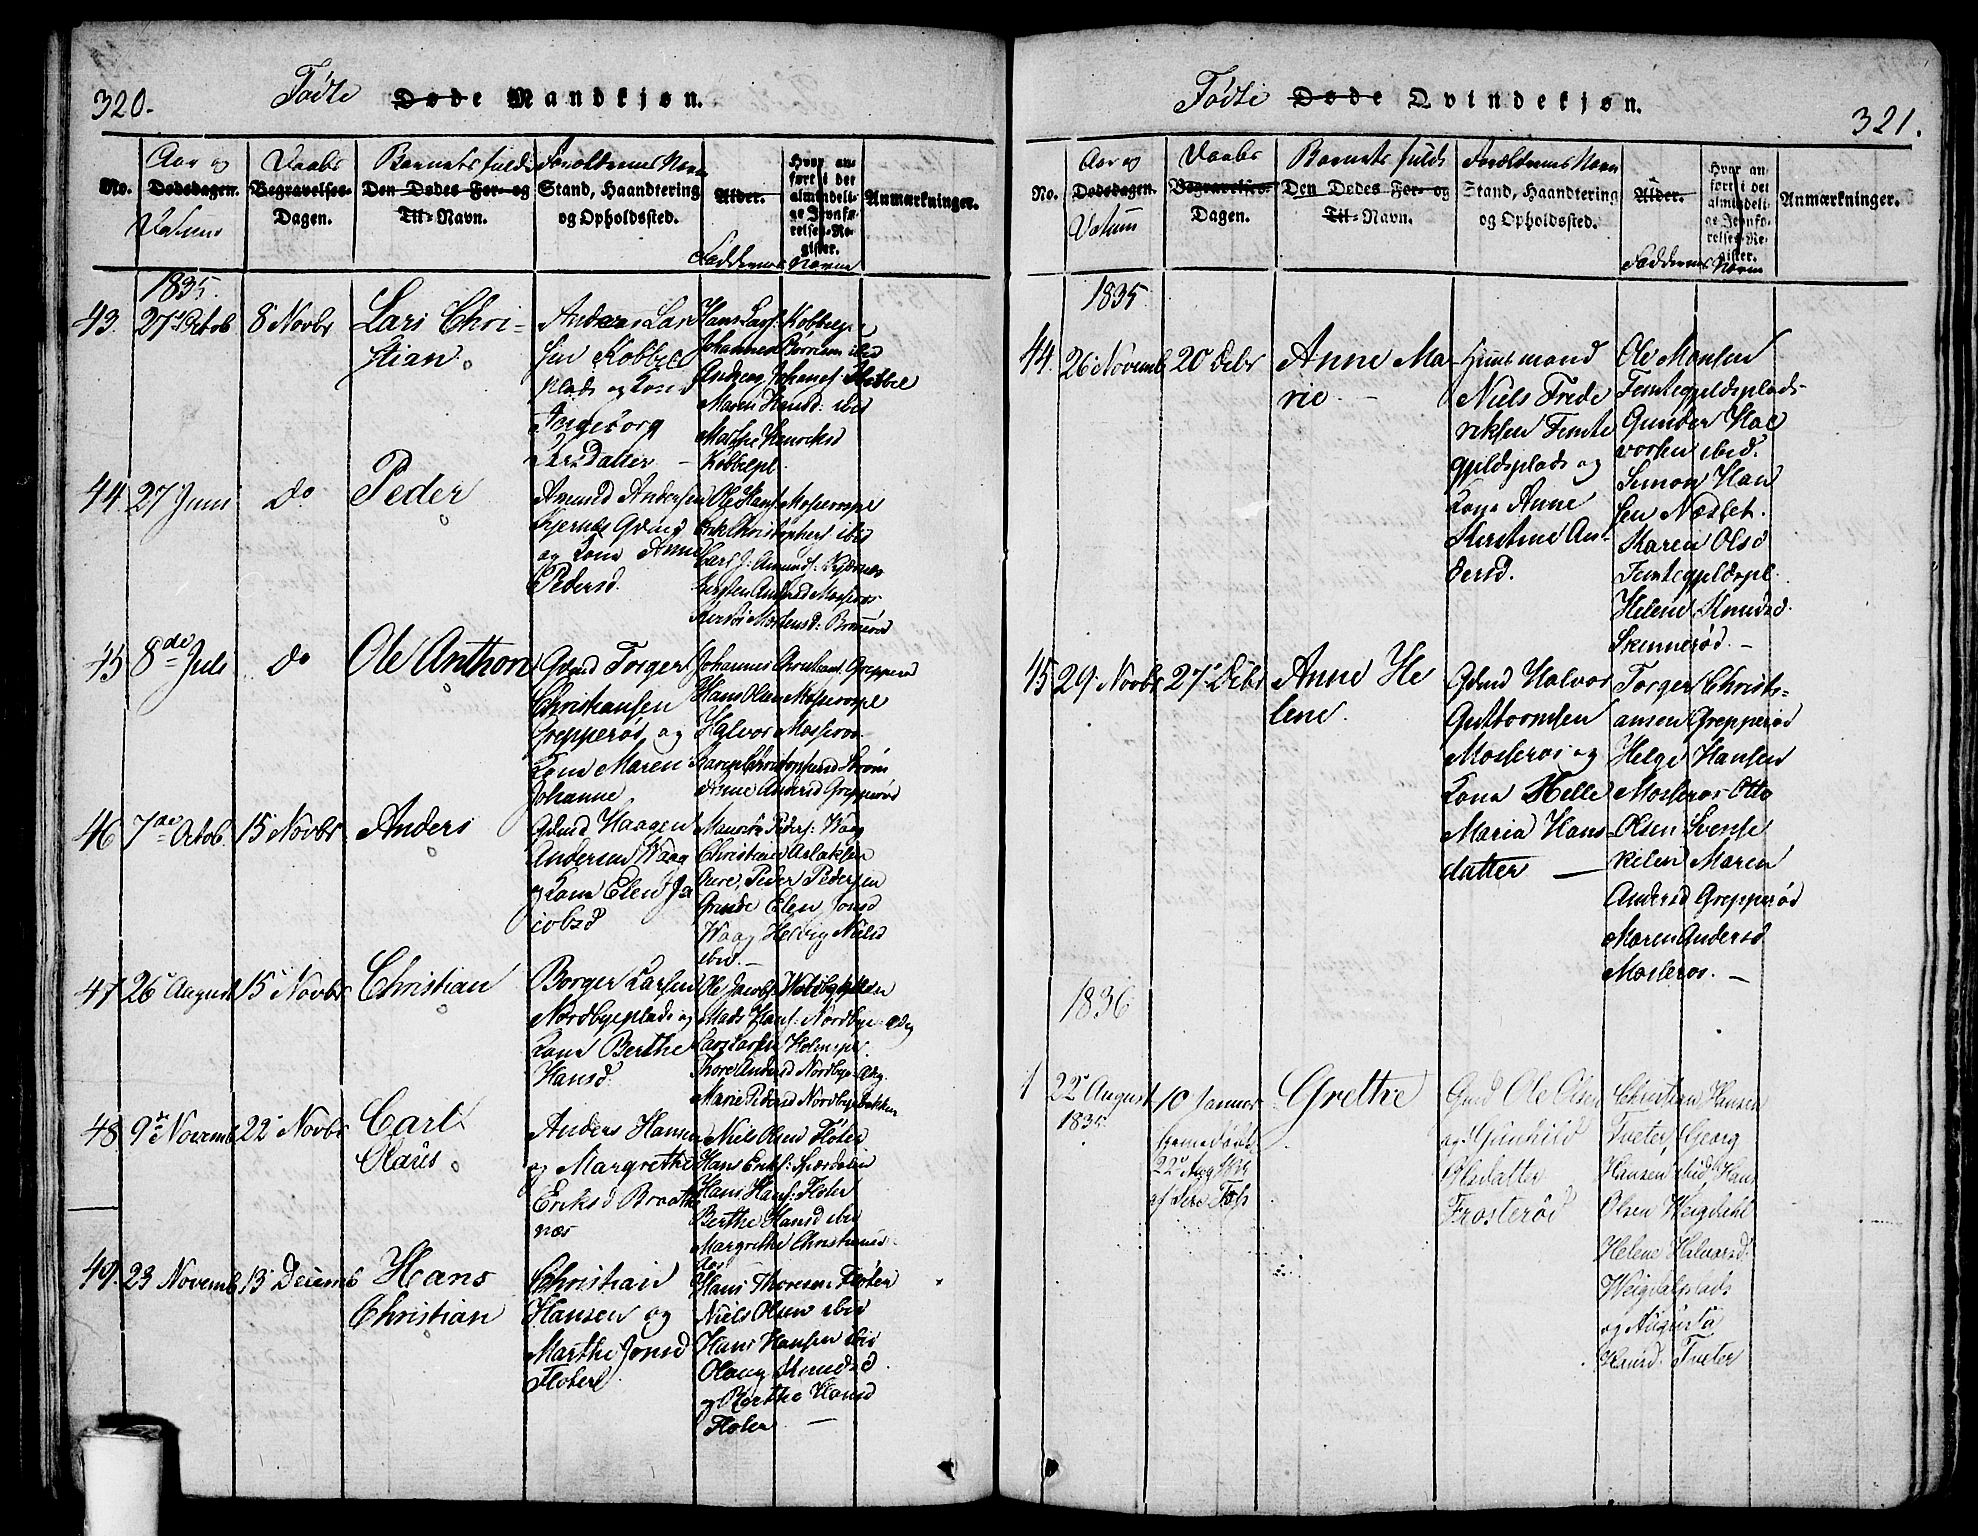 320.
Fødte Døde Mandkjøn.
No.
Aar og
Dødsdagen.
Datum
Daabs
Begravelses-
Dagen.
Barnets fulde
Den Dødes For- og
Til-Navn.
Forældrenes Navn
Stand, Haandtering
og Opholdssted.
Alder.
Faddernes Navne
Hvor an-
ført i det
almindeli-
ge Jevnfø-
relses-Re-
gister.
Anmærkninger.
1835.
43.
27 Octob
8 Novbr
Lars Chri-
stian.
Anders Lar
sen Kobbel
plads og Kone
Ingeborg
Larsdatter
Hans Lars: Kobbelpl
Johannes ibid
Maren Hansd: ibid
Marthe Henriksd
Kobbelpl.
44.
27 Juni
do
Peder
Amund Andersen
Kjernes Gdmd
og Kone Anne
Pedersd.
Ole Hans: Moserospl
Erik Christophers ibid
Carl J: Amunds: Kjærnes
Kirsten Andersd Moseros
45
8de Juli
do
Ole Anthon
Gdmd Torger
Christiansen
Grepperød og
Kone Maren
Johanne
Johannes Christians Grepperød
Hans Olsen Moserospl
Halvor Moseros
Andersd Grepperød
46
7de Octob.
15 Novbr
Anders
Gdmd Haagen
Andersen Waag
og Kone Elen Ja
cobsd
Peders: Waag
Christian Aslaksen
Aure, Peder Pedersen
Grande Elen Jonsd
Waag Helvig Nielsd
ibid.
47
26 August
15 Novbr
Christian
Borger Larsen
Nordbyeplads og
Kone Berthe
Hansd.
Ole Jacobs:
Mads Hans: Nordbye
Lars Larsen Holmspl.
Thore Andersd Nordbye
Marie Pedersd Nordbyebakken
48.
9de Novemb
22 Novbr
Carl
Claus
Anders Hansen
og Margrethe
Eriksd Braate
næs
Niels Olsen Floter
Hans Eriks:
Hans Hans: Floter
Berthe Hansd ibid
Margrethe Christiansd
49.
23 Novemb
13 Decemb
Hans
Christian
Christian
Hansen og
Marthe Jonsd
Floter
Hans Thoresen Floter
Niels Olsen ibid
Hans Hansen ibid
Olaug Knudsd
og Berthe Hansd
Floter
321.
Fødte Døde Qvindekjøn.
No.
Aar og
Dødsdagen.
Datum
Daabs
Begravelses-
Dagen.
Barnets fulde
Den Dødes For- og
Til-Navn.
Forældrenes Navn
Stand, Haandtering
og Opholdssted.
Alder.
Faddernes Navne
Hvor an-
ført i det
almindeli-
ge Jevnfø-
relses-Re-
gister.
Anmærkninger.
1835
44.
26 Novemb
20 Debr
Anne Ma-
rie.
Huusmand
Niels Frede
riksen Femte
gjeldsplads og
Kone Anne
Kirstine An-
dersd.
Ole Monsen
Femtegjeldsplads
Gunder Hal
vorsen ibid.
Simon Han
sen Næsset.
Karen Olsd
Femtegjeldspl.
Helene Knudsd.
Skinnerød.
45
29. Novbr
27 Debr
Anne He
lene.
Gdmd Halvor
Guttormsen
Moseros og
Kone Helle
Maria Hans-
datter
Torger Christi-
ansen Grepperød
Helge Hansen
Moseros Otto
Olsen Svense
kilen Maren
Andersd Grepperød
Maren Andersd
Moseros.
1836
1
22 August
1835.
10 Januar
hjemmedøbt
22 Aug 1835
Grethe
Gmd Ole Olsen
og Gunhild
Olsdatter
Frosterød
Christian Hansen
Tveter, Georg
Hansen ibid, Hans
Olsen Weigdahl
Helene Halvorsd.
Weigdalplads
og Augusta
Hansd. Tveter